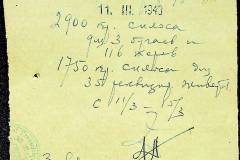 11. III. 1943
2900 кг. силоса
для 3 бугаев и
116 коров
1750 кг. силоса для
35 реквизир. животн.
с 11/3 – 15/3